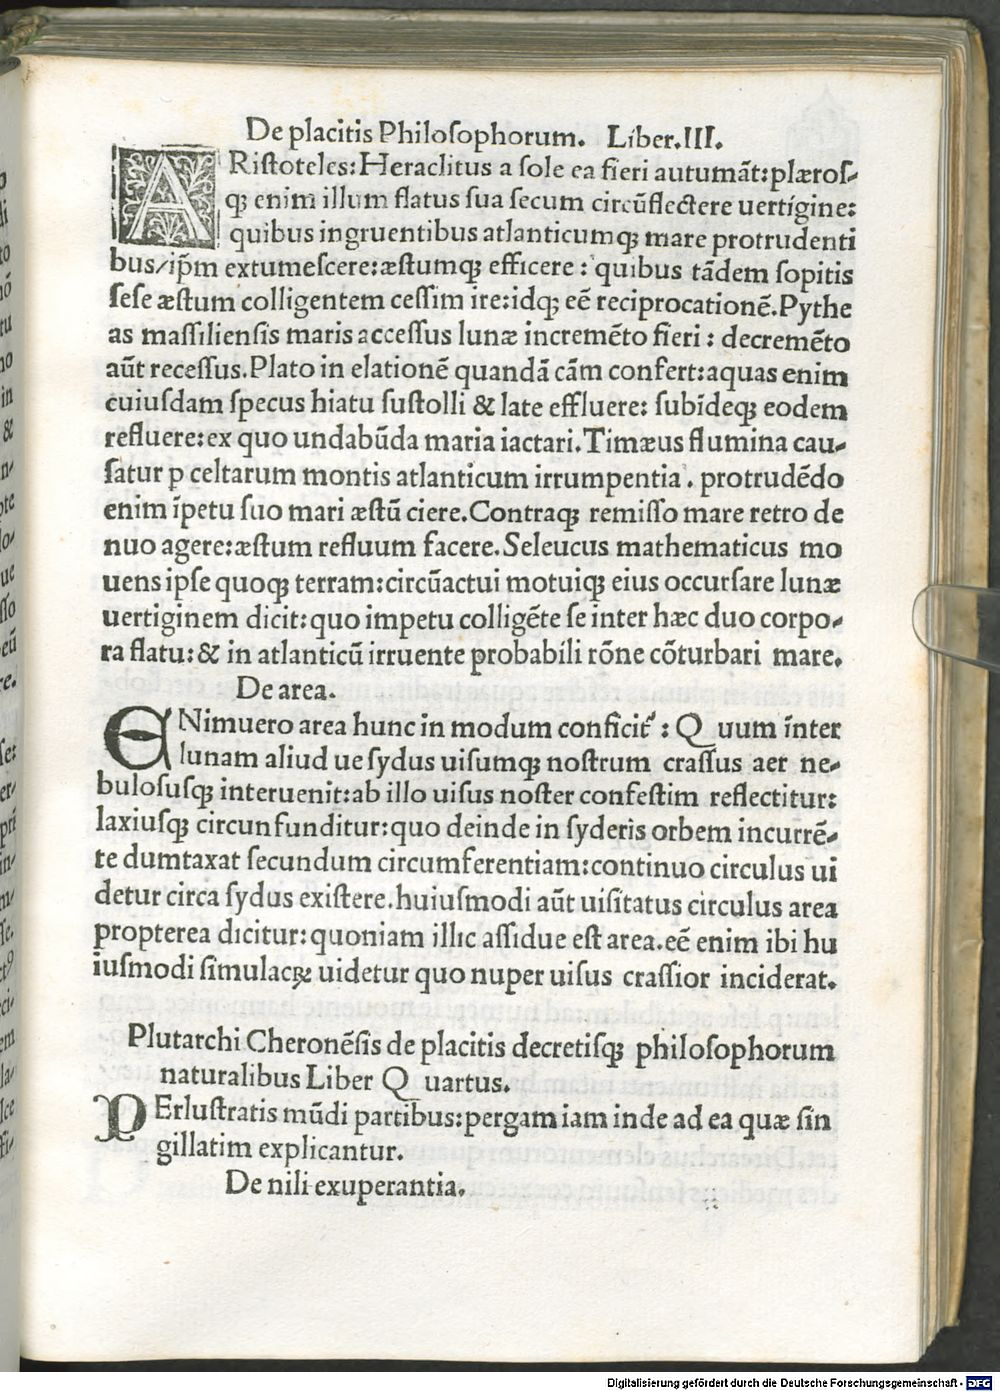 De placitis Philoſophorum. Liber.III.
ARiſtoteles:Heraclitus a ſole ea fieri autumāt:plæroſ-
qꝫ enim illum flatus ſua ſecum circūflectere uertigine:
quibus ingruentibus atlanticumqꝫ mare protrudenti
bus/ip̄m extumeſcere:æſtumqꝫ efficere : quibus tādem ſopitis
ſeſe æſtum colligentem ceſſim ire:idqꝫ eē reciprocationē.Pythe
as maſſilienſis maris acceſſus lunæ incremēto fieri : decremēto
aūt receſſus.Plato in elationē quandā cām confert:aquas enim
cuiuſdam ſpecus hiatu ſuſtolli & late effluere: ſubīdeqꝫ eodem
refluere:ex quo undabūda maria iactari.Timæus flumina cau-
ſatur ꝑ celtarum montis atlanticum irrumpentia . protrudēdo
enim īpetu ſuo mari æſtū ciere.Contraqꝫ remiſſo mare retro de
nuo agere:æſtum refluum facere.Seleucus mathematicus mo
uens ipſe quoqꝫ terram:circūactui motuiqꝫ eius occurſare lunæ
uertiginem dicit:quo impetu colligēte ſe inter hæc duo corpo-
ra flatu:& in atlanticū irruente probabili rōne cōturbari mare.
De area.
ENimuero area hunc in modum conficit᷑ : Quum īnter
lunam aliud ue ſydus uiſumqꝫ noſtrum craſſus aer ne-
buloſuſqꝫ interuenit:ab illo uiſus noſter confeſtim reflectitur:
laxiuſqꝫ circunfunditur:quo deinde in ſyderis orbem incurrē-
te dumtaxat ſecundum circumferentiam:continuo circulus ui
detur circa ſydus exiſtere.huiuſmodi aūt uiſitatus circulus area
propterea dicitur:quoniam illic aſſidue eſt area.eē enim ibi hu
iuſmodi ſimulacꝝ uidetur quo nuper uiſus craſſior inciderat.
Plutarchi Cheronēſis de placitis decretiſqꝫ philoſophorum
naturalibus Liber Quartus.
PErluſtratis mūdi partibus:pergam iam inde ad ea quæ ſin
gillatim explicantur.
De nili exuperantia.
Digitalisierung gefördert durch die Deutsche Forschungsgemeinschaft - DFG